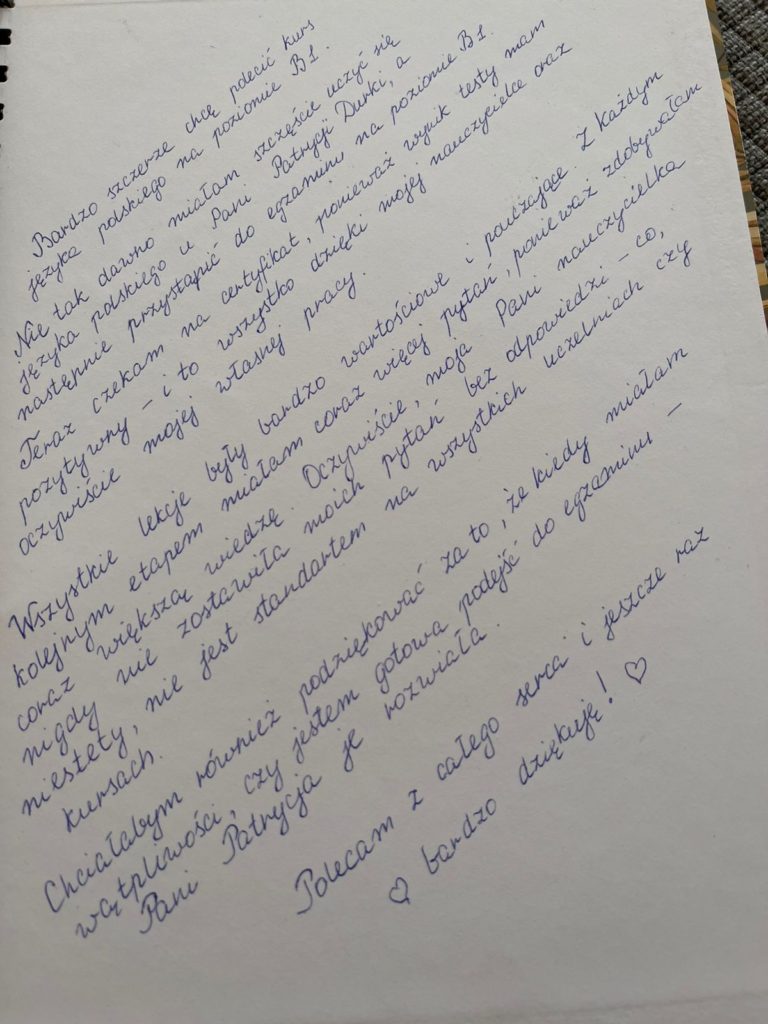 Bardzo szczerze chcę polecić kurs
języka polskiego na poziomie B1.
Nie tak dawno miałam szczęście uczyć się
języka polskiego u Pani Patrycji Durki, a
następnie przystąpić do egzaminu na poziomie B1.
Teraz czekam na certyfikat, ponieważ wynik testy mam
pozytywny – i to wszystko dzięki mojej nauczycielce oraz
oczywiście mojej własnej pracy.
Wszystkie lekcje były bardzo wartościowe i pouczające. Z każdym
kolejnym etapem miałam coraz więcej pytań, ponieważ zdobywałam
coraz większą wiedzę. Oczywiście, moja Pani nauczycielka
nigdy nie zostawiła moich pytań bez odpowiedzi – co,
niestety, nie jest standartem na wszystkich uczelniach czy
kursach.
Chciałabym również podziękować za to, że kiedy miałam
wątpliwości, czy jestem gotowa podejść do egzaminu –
Pani Patrycja je rozwiała.
Polecam z całego serca i jeszcze raz
♡ bardzo dziękuję! ♡